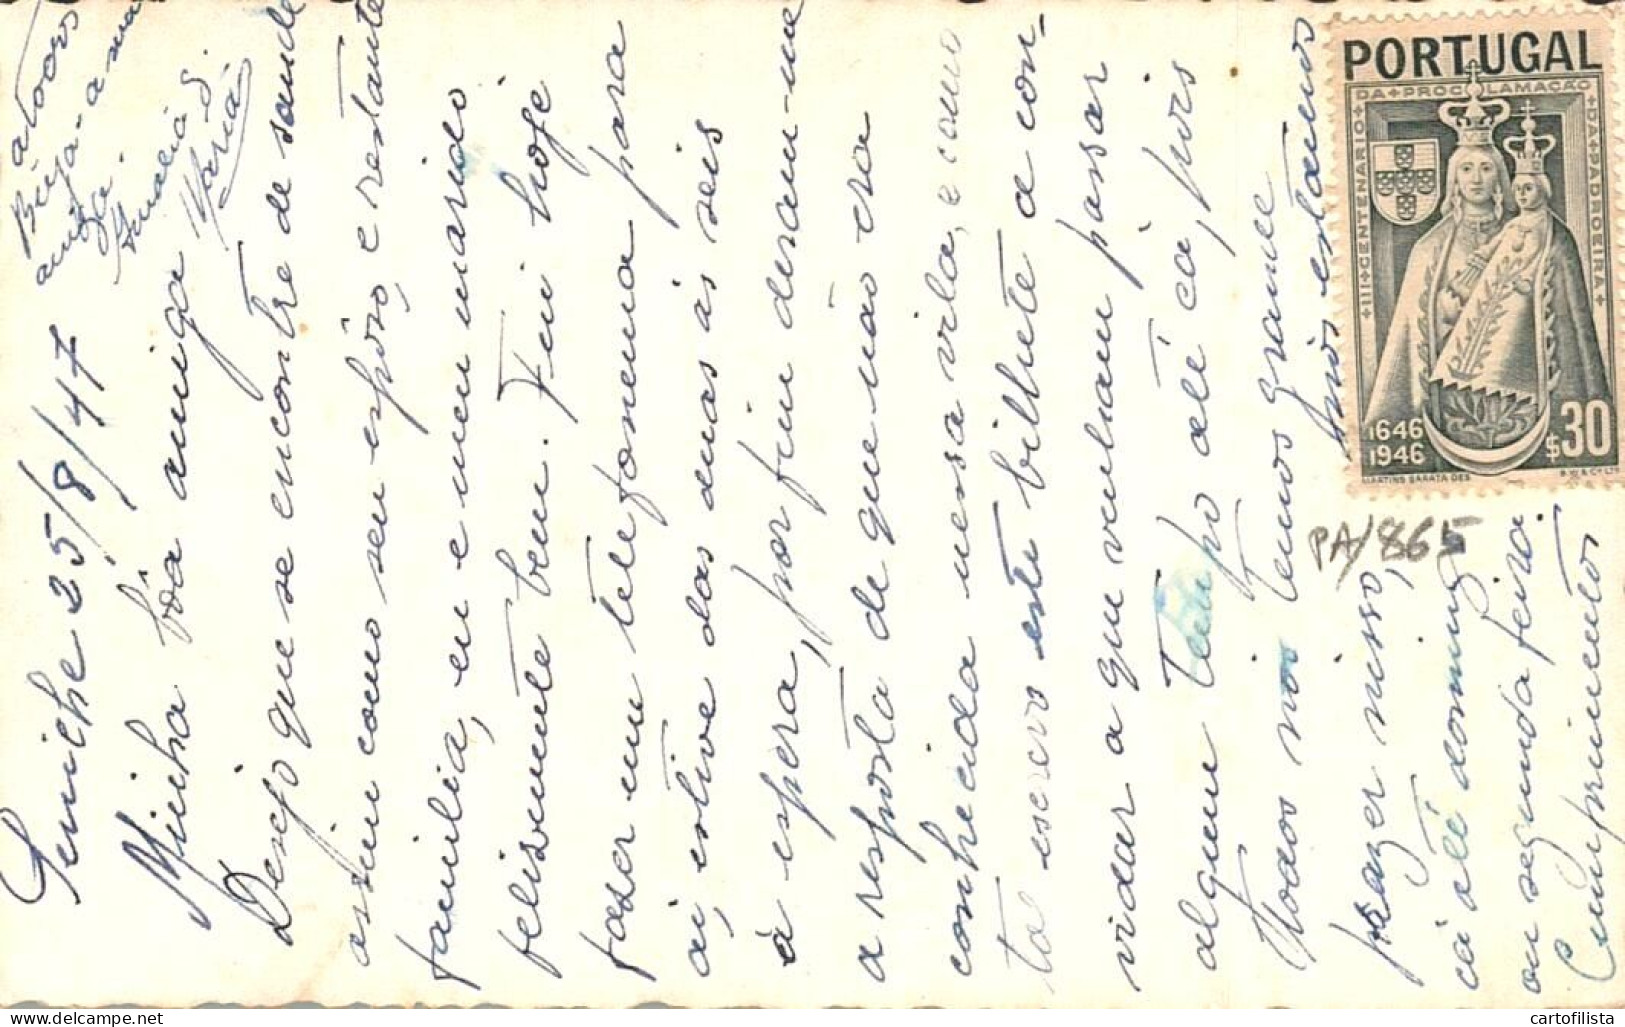 Peniche 25/8/47
Minha bôa amiga
Desejo que se encontre de saude
assim como seu espôso, e restante
familia, eu e meu marido
felismente bem. Fui hoje
faser um telefonema para
ai, estive das duas ás seis
á espera, por fim deram-me
a resposta de que não era
conhecida nessa vila, e como
tal escrevo este bilhete a con-
vidar a que venham passar
algum tempo até cá, pois
todos nós temos grande
prazer nisso, pois estamos
cá até doming
ou segunda feira.
Cumprimentos
a todos
Beija-a sua
amiga
Maria
PORTUGAL
III CENTENÁRIO DA PROCLAMAÇÃO DA PADROEIRA
1646
1946
$30
MARTINS BARATA DES.
PA/865
www.delcampe.net
cartofilista